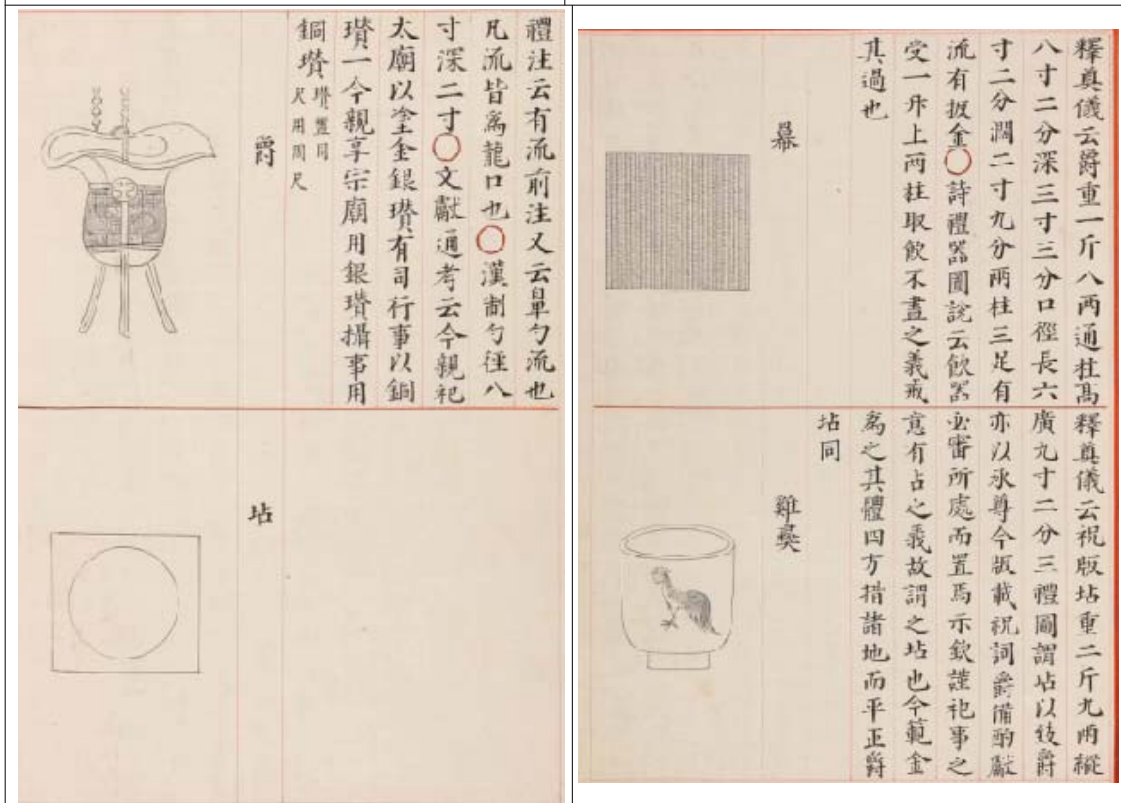 禮注云有流前注又云鼻勺流也
凡流皆爲龍口也○漢制勺徑八
寸深二寸○文獻通考云今親祀
太廟以塗金銀瓚有司行事以銅
瓚一今親享宗廟用銀瓚攝事用
銅瓚瓚盤同
尺用周尺
爵
坫
釋奠儀云爵重一斤八兩通柱高
八寸二分深三寸三分口徑長六
寸二分濶二寸九分兩柱三足有
流有扳金○詩禮器圖說云飮器
受一升上兩柱取飮不盡之義戒
其過也
冪
釋奠儀云祝版坫重二斤九兩縱
廣九寸二分三禮圖謂坫以致爵
亦以承尊今版載祝詞爵備酌獻
必審所處而置焉示欽謹祀事之
意有占之義故謂之坫也今範金
爲之其體四方措諸地而平正爵
坫同
雞彝